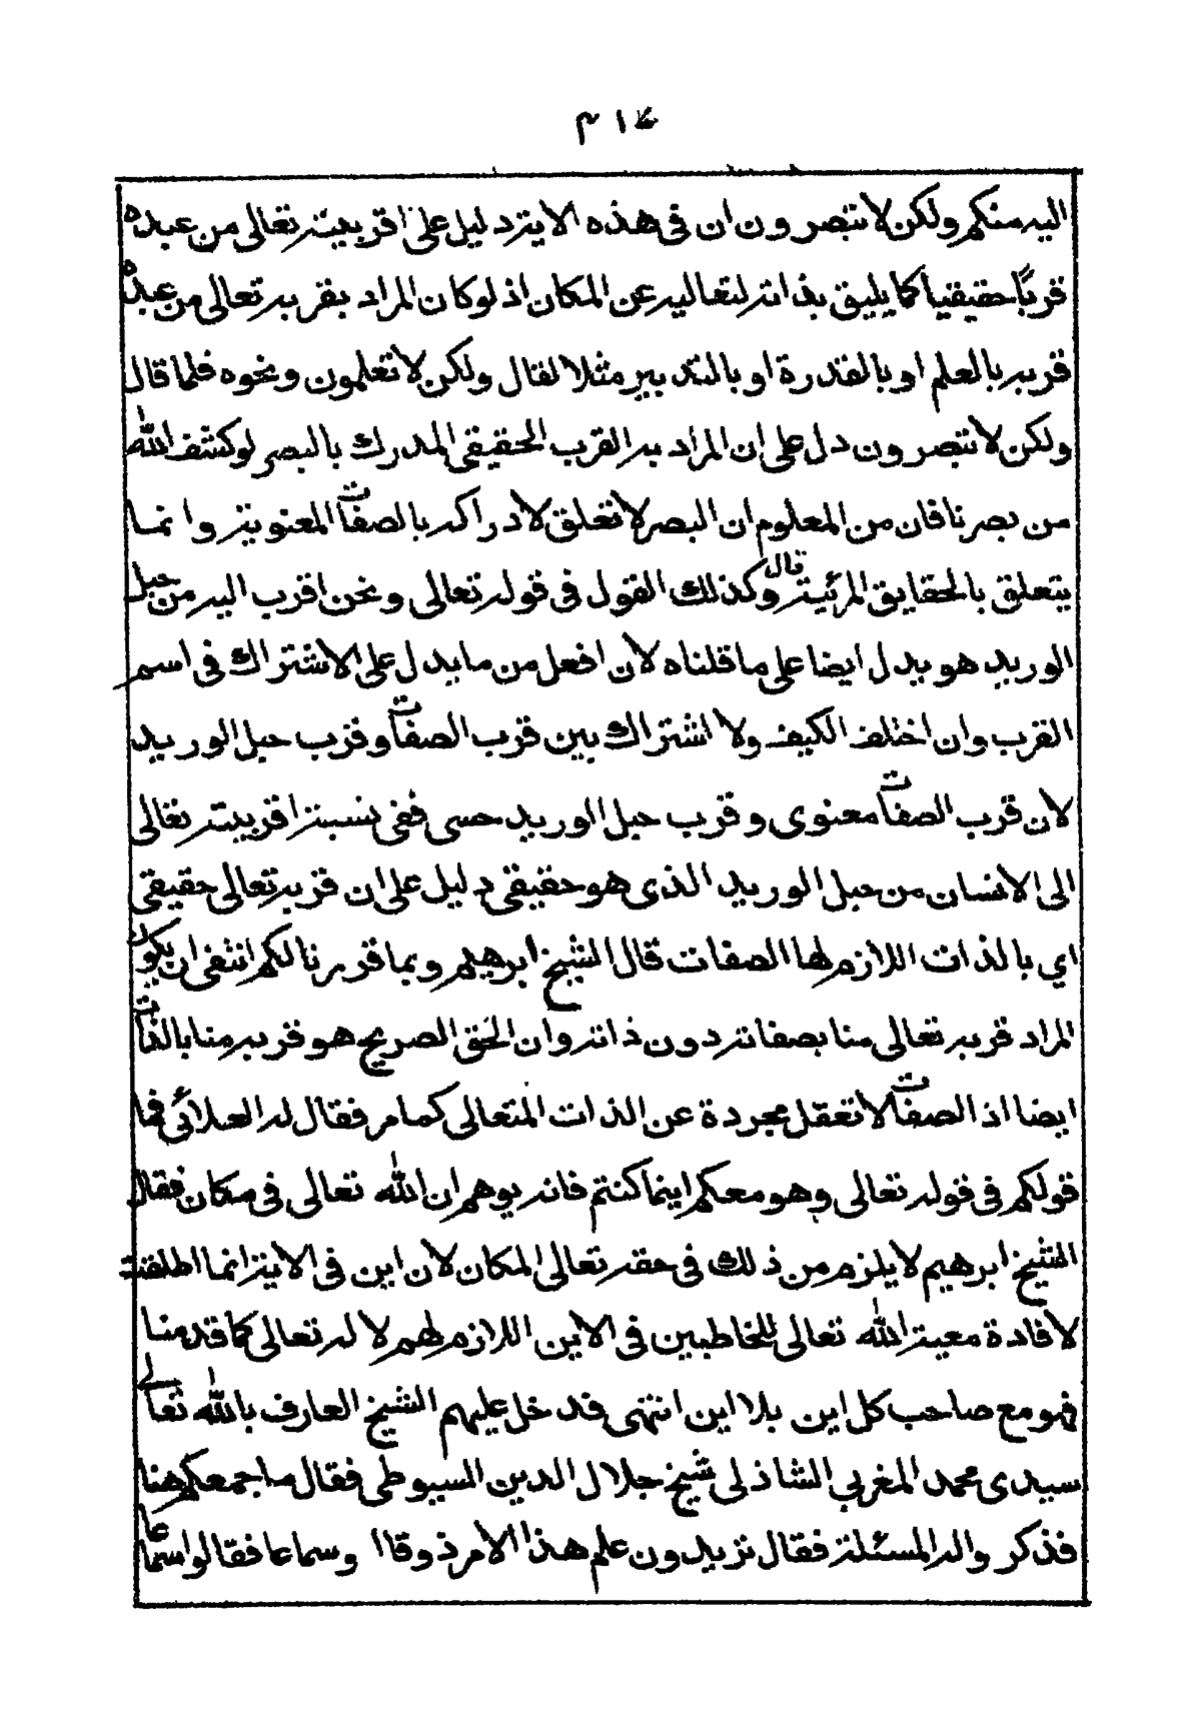 ٤١٣
اليه منكم ولكن لا تبصرون ان في هذه الاية دليل على اقربيته تعالى من عبده
قربًا حقيقيا كما يليق بذاته لتعاليه عن المكان اذ لو كان المراد بقربه تعالى من عبده
قربه بالعلم او بالقدرة او بالتدبير مثلا لقال ولكن لا تعلمون ونحوه فلما قال
ولكن لا تبصرون دل على ان المراد به القرب الحقيقي المدرك بالبصر لو كشف الله
من بصرنا فان من المعلوم ان البصر لا تعلق لادراكه بالصفات المعنوية وانما
يتعلق بالحقايق المرئية قال وكذلك القول في قوله تعالى ونحن اقرب اليه من حبل
الوريد هو يدل ايضا على ما قلناه لان افعل من ما يدل على الاشتراك في اسم
القرب وان اختلف الكيف ولا اشتراك بين قرب الصفات وقرب حبل الوريد
لان قرب الصفات معنوى وقرب حبل الوريد حسى ففى نسبة اقربيته تعالى
الى الانسان من حبل الوريد الذى هو حقيقى دليل على ان قربه تعالى حقيقى
اي بالذات اللازم لها الصفات قال الشيخ ابرهيم وبما قررنا لكم انتفى ان يكون
المراد قربه تعالى منا بصفاته دون ذاته وان الحق الصريح هو قربه منا بالذات
ايضا اذ الصفات لا تعقل مجردة عن الذات المتعالى كما مر فقال له العلائى فما
قولكم في قوله تعالى وهو معكم اينما كنتم فانه يوهم ان الله تعالى في مكان فقال
الشيخ ابرهيم لا يلزم من ذلك في حقه تعالى المكان لان اين في الاية انما اطلقت
لافادة معية الله تعالى للمخاطبين في الاين اللازم لهم لا له تعالى كما قدمنا
فهو مع صاحب كل اين بلا اين انتهى فدخل عليهم الشيخ العارف بالله تعالى
سيدى محمد المغربي الشاذلى شيخ جلال الدين السيوطى فقال ما جمعكم هنا
فذكروا له المسئلة فقال تريدون علم هذا الامر ذوقا او سماعا فقالوا سماعا